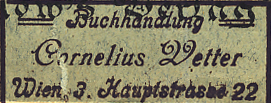 Buchhandlung
Cornelius Vetter
Wien, 3. Hauptstrasse 22